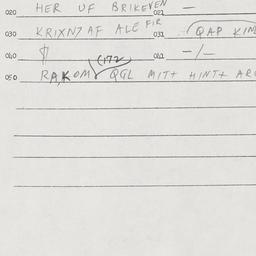 020 HER OF BRIKEVEN 021 —
030 KRIXN7 AF ALE FIR 031 QAP KIN
040 041 -/-
050 RA,KOM QGL MITT HINT+ ARO